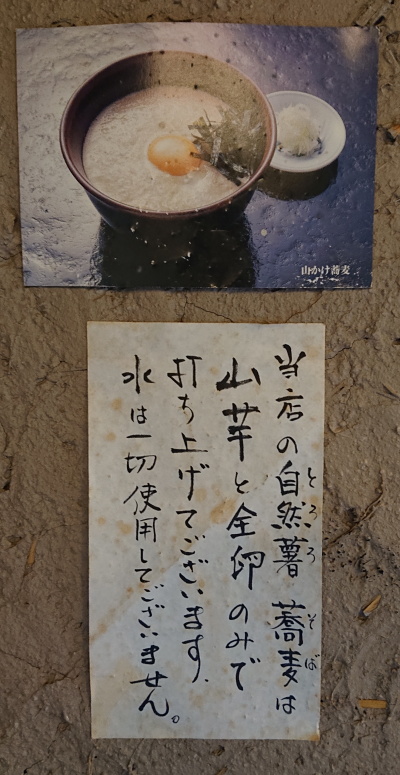 山かけ蕎麦
当店の自然薯蕎麦は
とろろ
そば
山芋と全卵のみで
打ち上げてございます、
水は一切使用してございません。